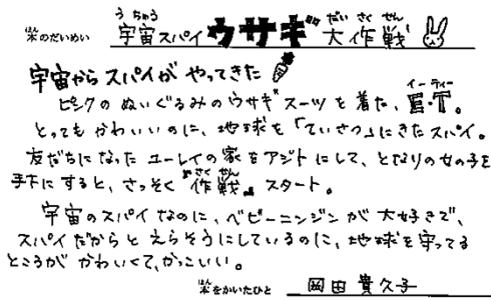 本のだいめい 宇宙スパイウサギ大作戦
宇宙からスパイがやってきた
ピンクのぬいぐるみのウサギスーツを着た、E・T。
とってもかわいいのに、地球を「ていさつ」にきたスパイ。
友だちになったユーレイの家をアジトにして、となりの女の子を
手下にすると、さっそく『作戦』スタート。
宇宙のスパイなのに、ベビーニンジンが大好きで、
スパイだからとえらそうにしているのに、地球を守ってる
ところがかわいくて、かっこいい。
本をかいたひと 岡田貴久子